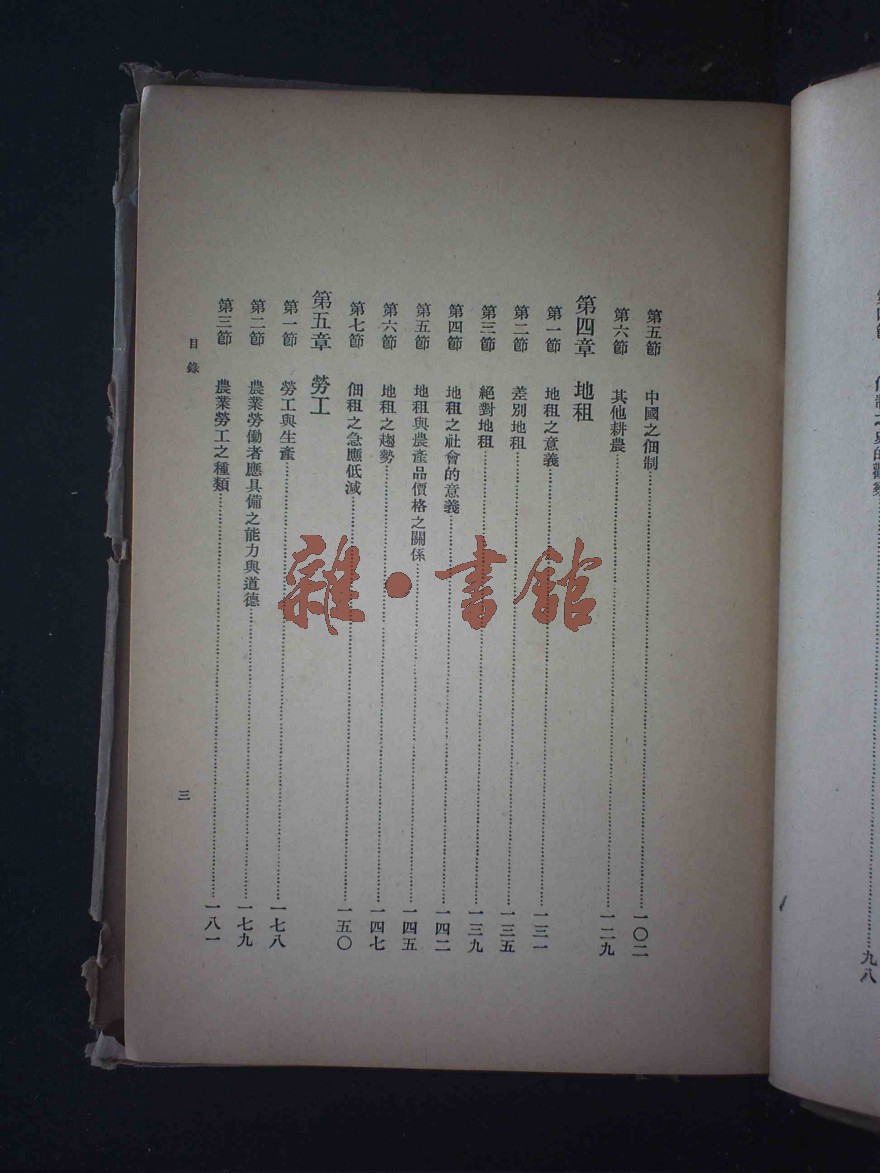 第四節 佃制之史的觀察……九八
第五節 中國之佃制……一〇二
第六節 其他耕農……一二九
第四章 地租
第一節 地租之意義……一三一
第二節 差別地租……一三五
第三節 絕對地租……一三九
第四節 地租之社會的意義……一四二
第五節 地租與農產品價格之關係……一四五
第六節 地租之趨勢……一四七
第七節 佃租之急應低減……一五〇
第五章 勞工
第一節 勞工與生產……一七八
第二節 農業勞働者應具備之能力與道德……一七九
第三節 農業勞工之種類……一八一
目錄
三
雜·書館